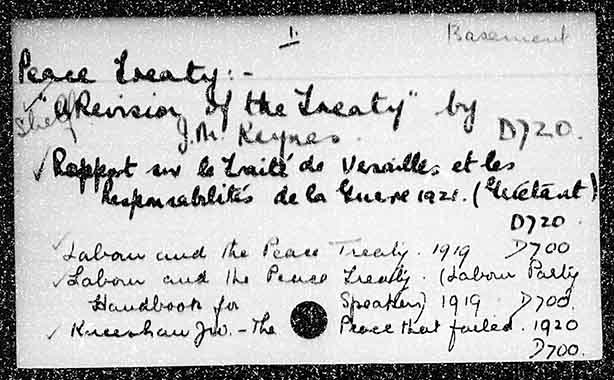 1.
Basement
Peace Treaty:-
✓ "A Revision of the Treaty" by
Shelf
J.M. Keynes.
D720.
✓ Rapport sur le Traité de Versailles et les
Responsabilités de la Guerre 1921. (
D720
✓ Labour and the Peace Treaty. 1919 D700
✓ Labour and the Peace Treaty. (Labour Party
Handbook for Speakers) 1919 D700.
✓ Kneeshaw J.W. - The Peace that failed. 1920
D700.